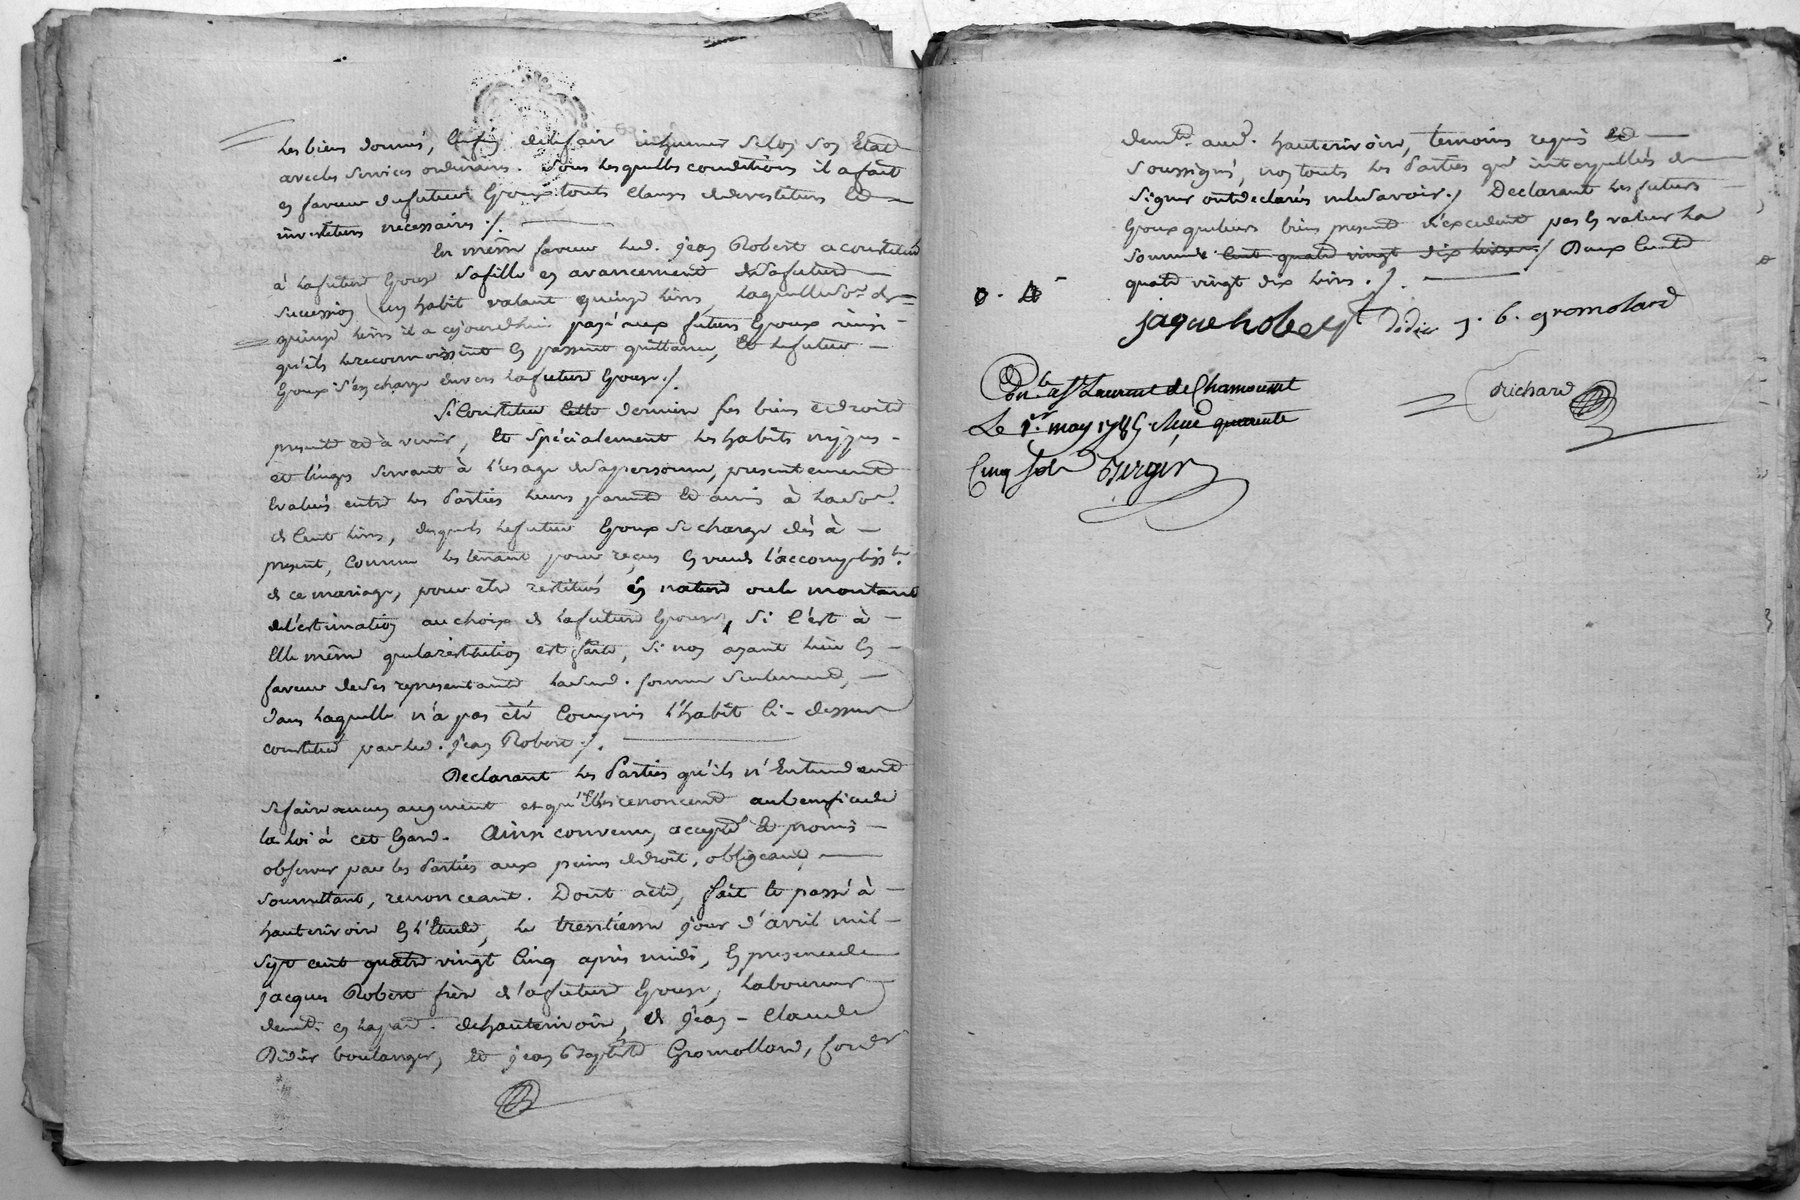 les biens donnés, Enfin de le fair inhumer selon son Etat
avec les services ordinaires. Sous lesquelles conditions il a fait
en faveur du futur Epoux touts clauses de devestiture Et
investiture nécessaires ./.
En même faveur led. jean Robert a constitué
à la future Epouse sa fille en avancement de sa future
succession un habit valant quinze livres, laquelle so.e de
quinze livres il a cejourd'hui payé aux futurs Epoux ainsi
qu'ils le reconnoissent En passent quittance, Et le futur
Epoux s'en charge envers la future Epouse ./.
Se Constitue cette derniere ses biens et droits
presents et à venir, Et Spécialement les habits nippes
et linges servant à l'usage de sa personne, presentement
Evalués entre les Parties leurs parents Et amis à la so.e
de Cent livres, desquels le futur Epoux se charge dès à
present, Comme les tenant pour reçus En vue de l'accompliss.t
de ce mariage, pour etre restitués en nature ou le montant
de l'estimation au choix de la future Epouse, Si C'est à
Elle même que la restitution est faite, Si non ayant lieu En
faveur de ses representants lad. somme Seulement,
dans laquelle n'a pas été Compris l'habit Ci-dessus
constitué par led. jean Robert ./.
Declarant les Parties qu'ils n'Entendent
se faire aucun augment et qu'Elles renoncent au benefice de
la loi à cet Egard. Ainsi convenu, accepté Et promis
observer par les Parties aux peines de droit, obligeant,
soumettant, renonceant. Dont acte, fait Et passé à
hauterivoire En l'Etude, le trentieme jour d'avril mil
sept cent quatre vingt Cinq après midi, En presence de
jacques Robert frère de la future Epouse, laboureur
demt. en la par. de hauterivoire, de jean-Claude
Didier boulanger, Et jean Baptiste Gromollard,
demts. aud. hauterivoire, temoins requis Et
soussignés, non touts les Parties qui interpellés de
signer ont declarés ne le savoir ./. Declarant les futurs
Epoux que leurs biens presents n'excedent pas la valeur La
somme de Cent quatre vingt dix livres ./. Deux Cents
quatre vingt dix livres ./.
jaque Robert Didier j. b. gromolard
Richard
Con.lé à St Laurent de Chamousset
Le 1.er may 1785. Recu quarante
Cinq sols Berger